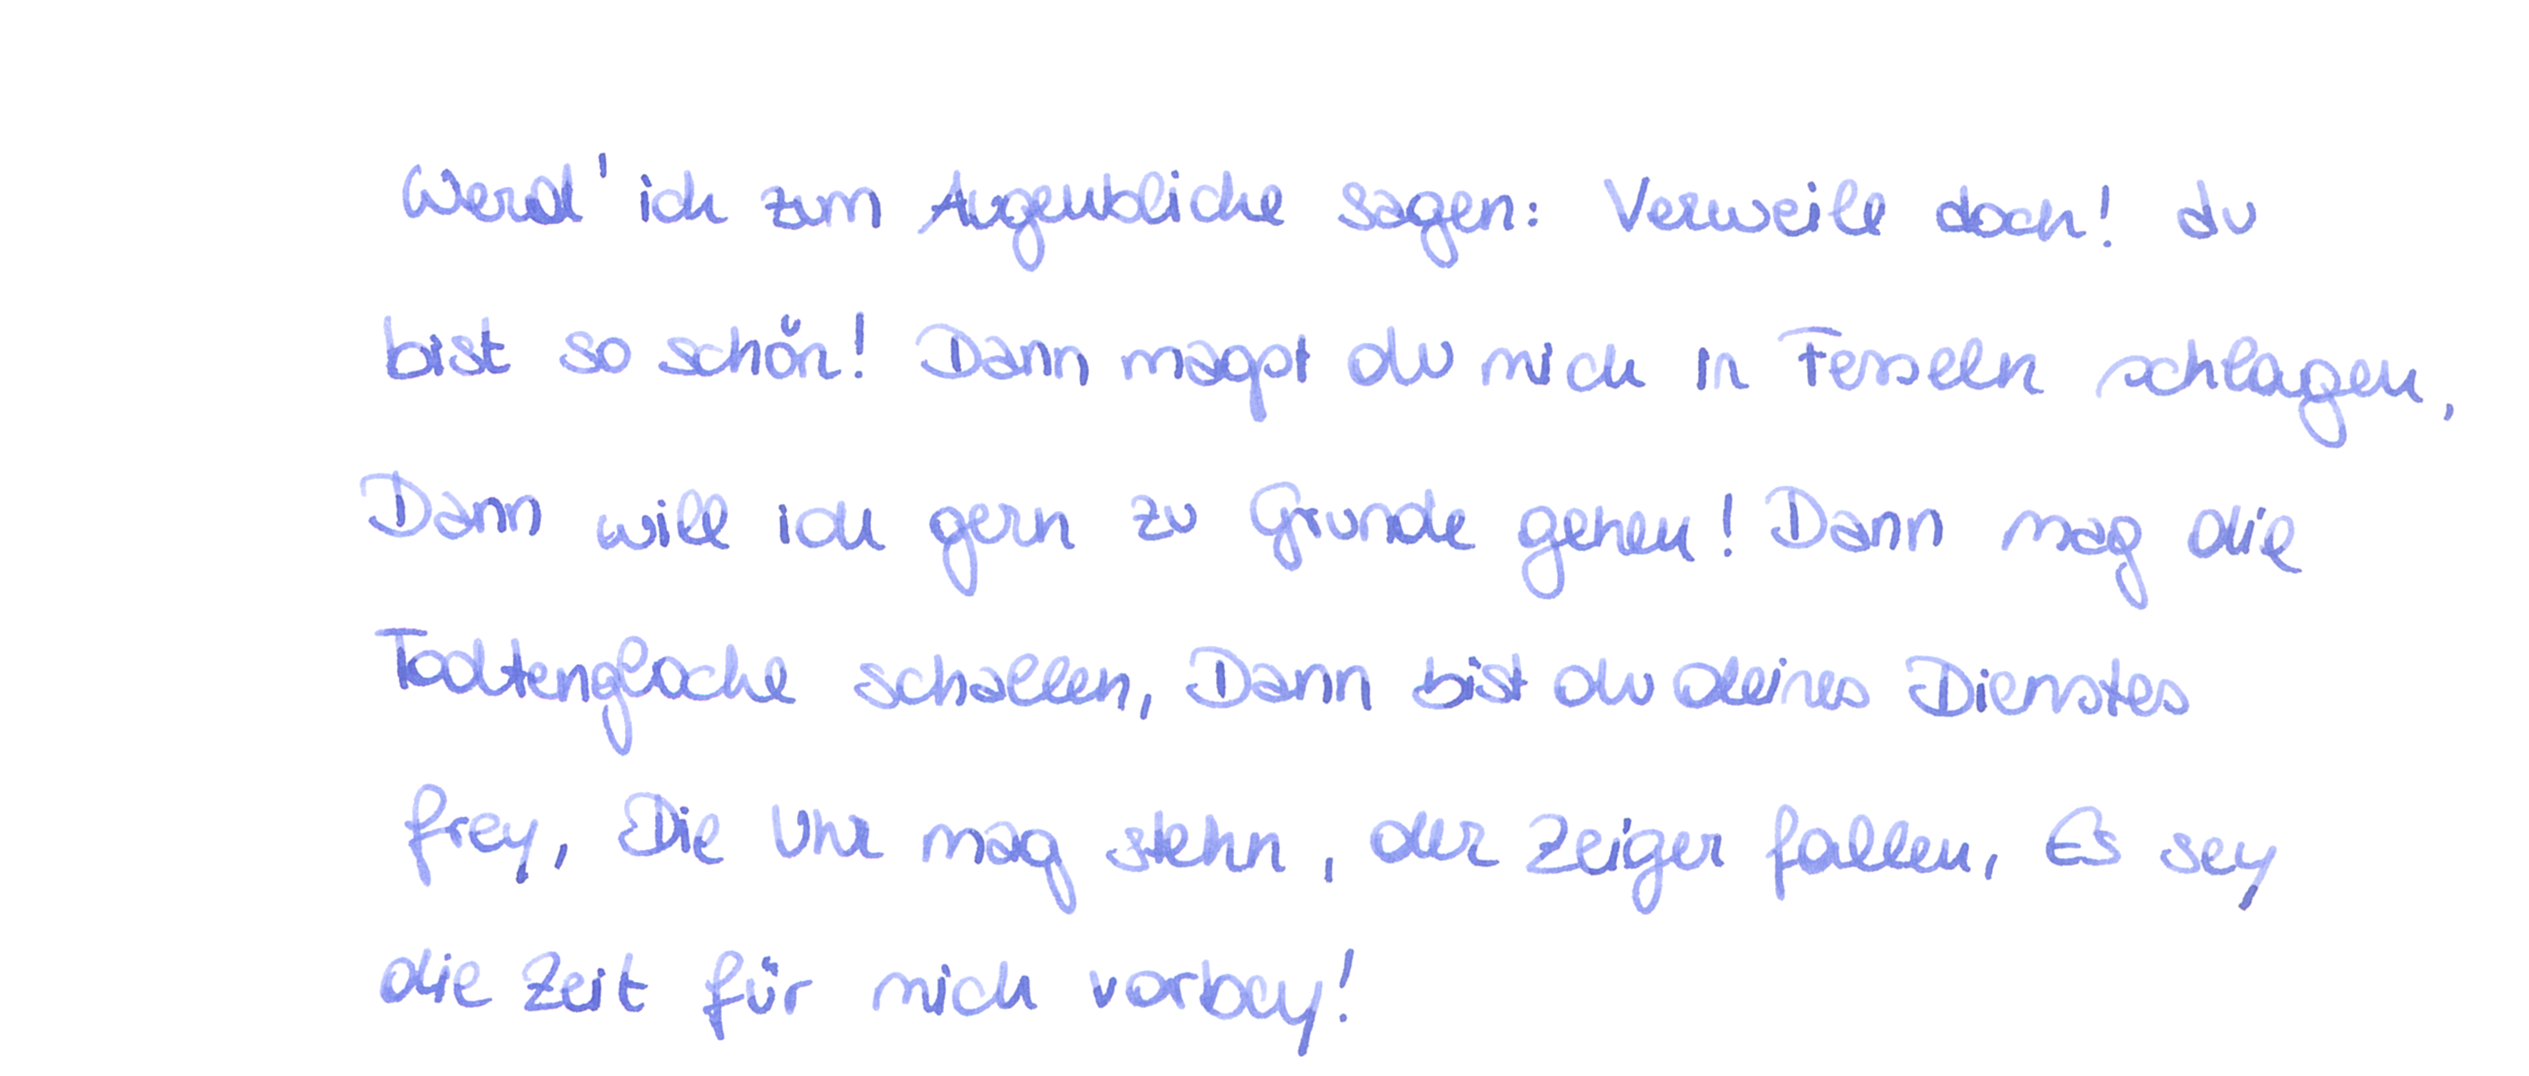 Werd' ich zum Augenblicke sagen: Verweile doch! du
bist so schön! Dann magst du mich in Fesseln schlagen,
Dann will ich gern zu Grunde gehen! Dann mag die
Todtenglocke schallen, Dann bist du deines Dienstes
frey, Die Uhr mag stehn, der Zeiger fallen, Es sey
die Zeit für mich vorbey!